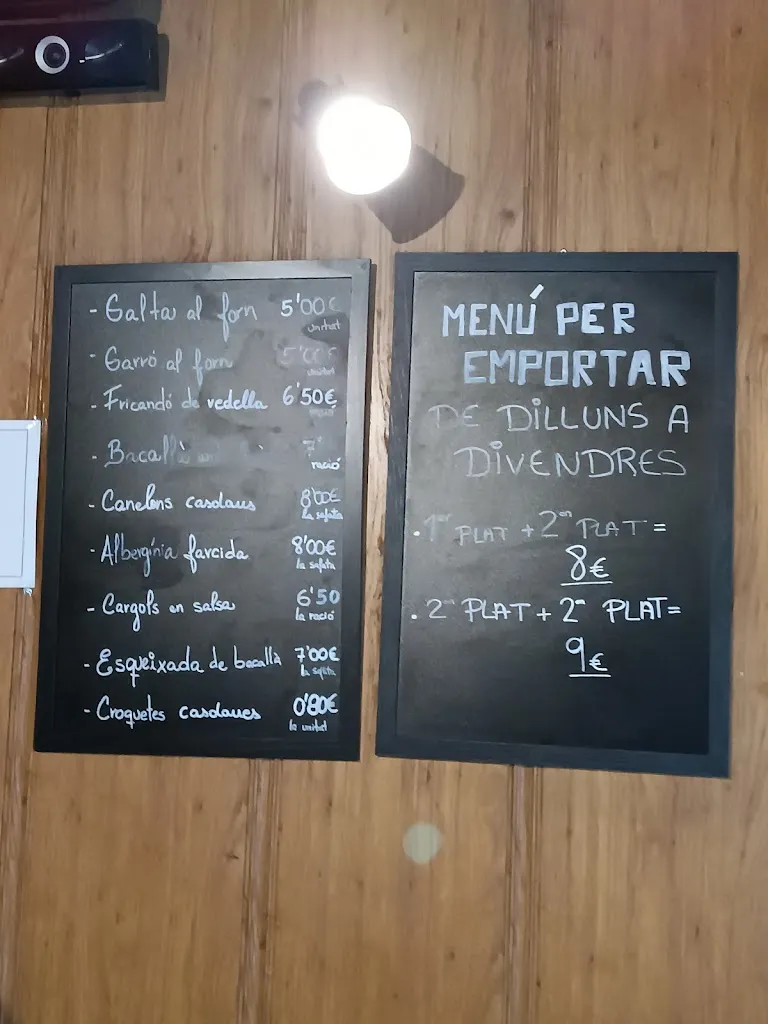 - Galta al forn 5'00€
unitat
- Garró al forn 5'00€
unitat
- Fricandó de vedella 6'50€
ració
- Bacallà 7'
ració
- Canelons casolans 8'00€
la safata
- Albergínia farcida 8'00€
la safata
- Cargols en salsa 6'50
la ració
- Esqueixada de bacallà 7'00€
la safata
- Croquetes casolanes 0'80€
la unitat
MENÚ PER
EMPORTAR
DE DILLUNS A
DIVENDRES
. 1er PLAT + 2on PLAT =
8€
. 2on PLAT + 2on PLAT =
9€